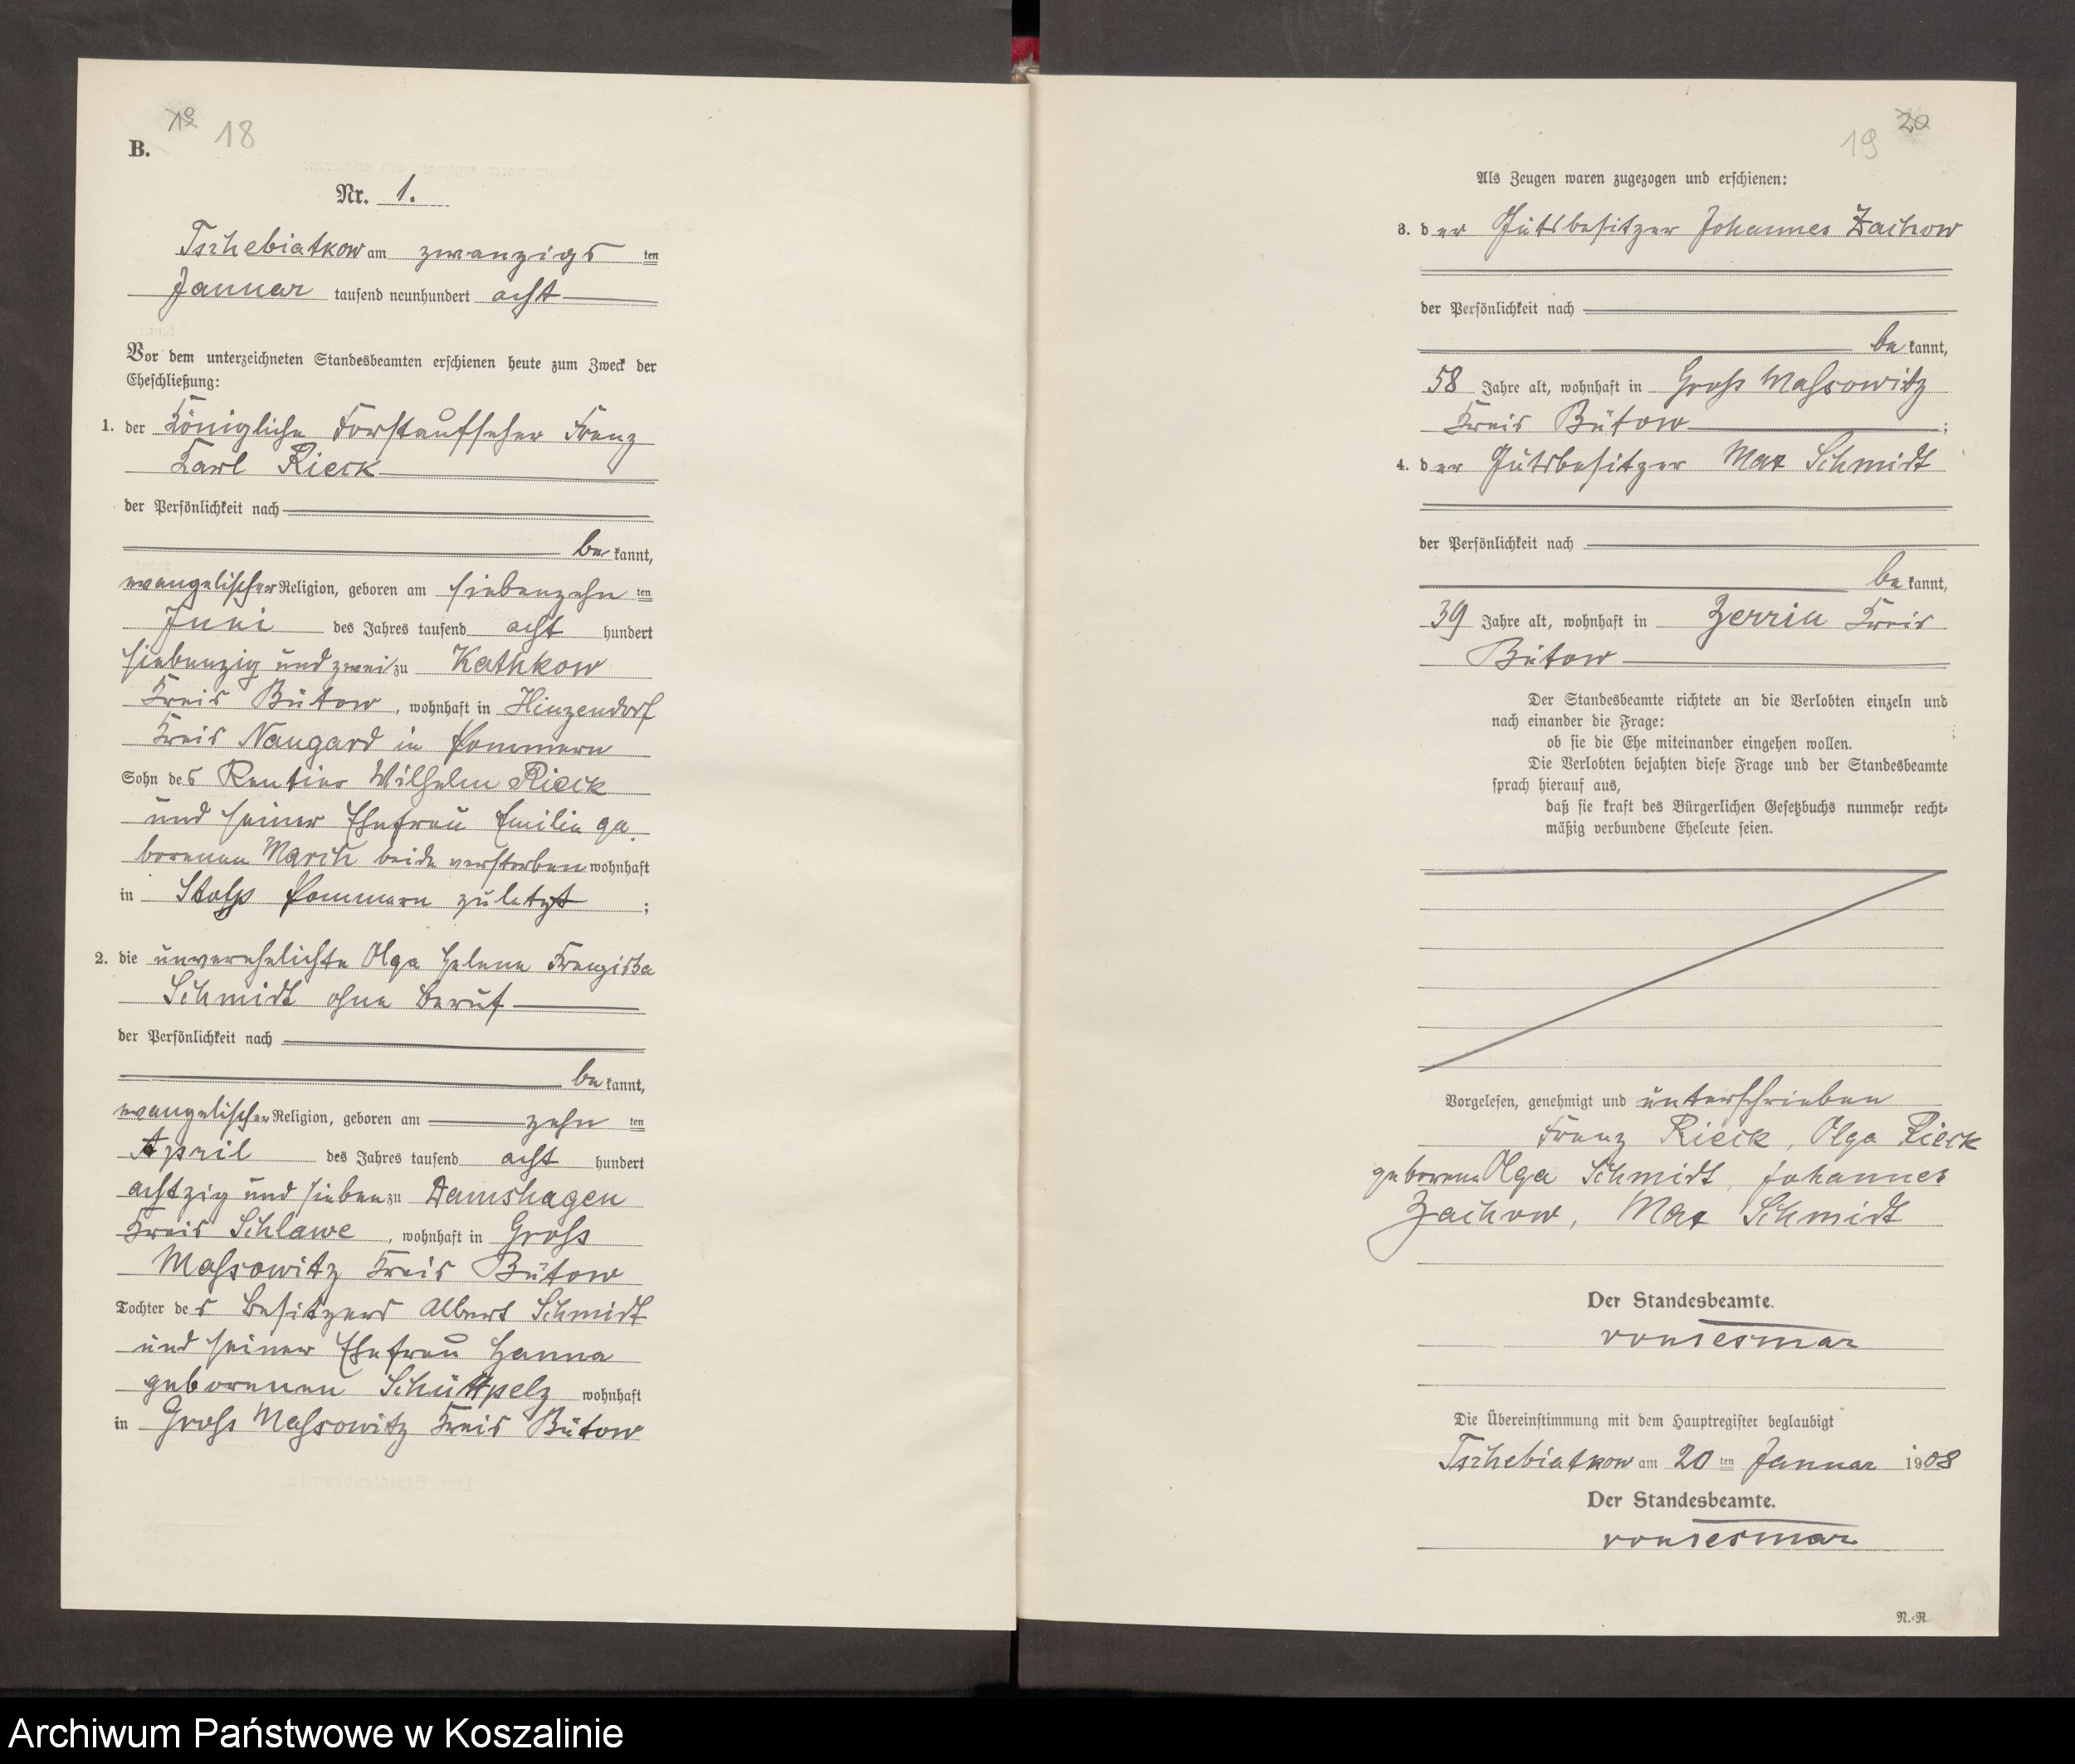 19 18
B.
Nr. 1.
Tschebiatkow am zwanzigs ten
Januar tausend neunhundert acht
Vor dem unterzeichneten Standesbeamten erschienen heute zum Zweck der
Eheschließung:
1. der Königliche Forstaufseher Franz
Karl Rieck
der Persönlichkeit nach
be kannt,
evangelischer Religion, geboren am siebenzehn ten
Juni des Jahres tausend acht hundert
siebenzig und zwei zu Kathkow
Kreis Bütow, wohnhaft in Hinzendorf
Kreis Naugard in Pommern
Sohn des Rentier Wilhelm Rieck
und seiner Ehefrau Emilie ge
borenen March beide verstorben wohnhaft
in Stolp Pommern zuletzt ;
2. die unverehelichte Olga Helene Franziska
Schmidt ohne Beruf
der Persönlichkeit nach
be kannt,
evangelischer Religion, geboren am zehn ten
April des Jahres tausend acht hundert
achtzig und sieben zu Damshagen
Kreis Schlawe, wohnhaft in Groß
Massowitz Kreis Bütow
Tochter des Besitzers Albert Schmidt
und seiner Ehefrau Hanna
geborenen Schüttpelz wohnhaft
in Gross Massowitz Kreis Bütow
19 20
Als Zeugen waren zugezogen und erschienen:
3. der Gutsbesitzer Johannes Zachow
der Persönlichkeit nach
be kannt,
58 Jahre alt, wohnhaft in Gross Massowitz
Kreis Bütow ;
4. der Gutsbesitzer Max Schmidt
der Persönlichkeit nach
be kannt,
39 Jahre alt, wohnhaft in Zerrin Kreis
Bütow
Der Standesbeamte richtete an die Verlobten einzeln und
nach einander die Frage:
ob sie die Ehe miteinander eingehen wollen.
Die Verlobten bejahten diese Frage und der Standesbeamte
sprach hierauf aus,
daß sie kraft des Bürgerlichen Gesetzbuchs nunmehr recht-
mäßig verbundene Eheleute seien.
Vorgelesen, genehmigt und unterschrieben
Franz Rieck, Olga Rieck
geborene Olga Schmidt, Johannes
Zachow, Max Schmidt
Der Standesbeamte.
Die Übereinstimmung mit dem Hauptregister beglaubigt
Tschebiatkow am 20 ten Januar 1908
Der Standesbeamte.
N.-R
Archiwum Państwowe w Koszalinie